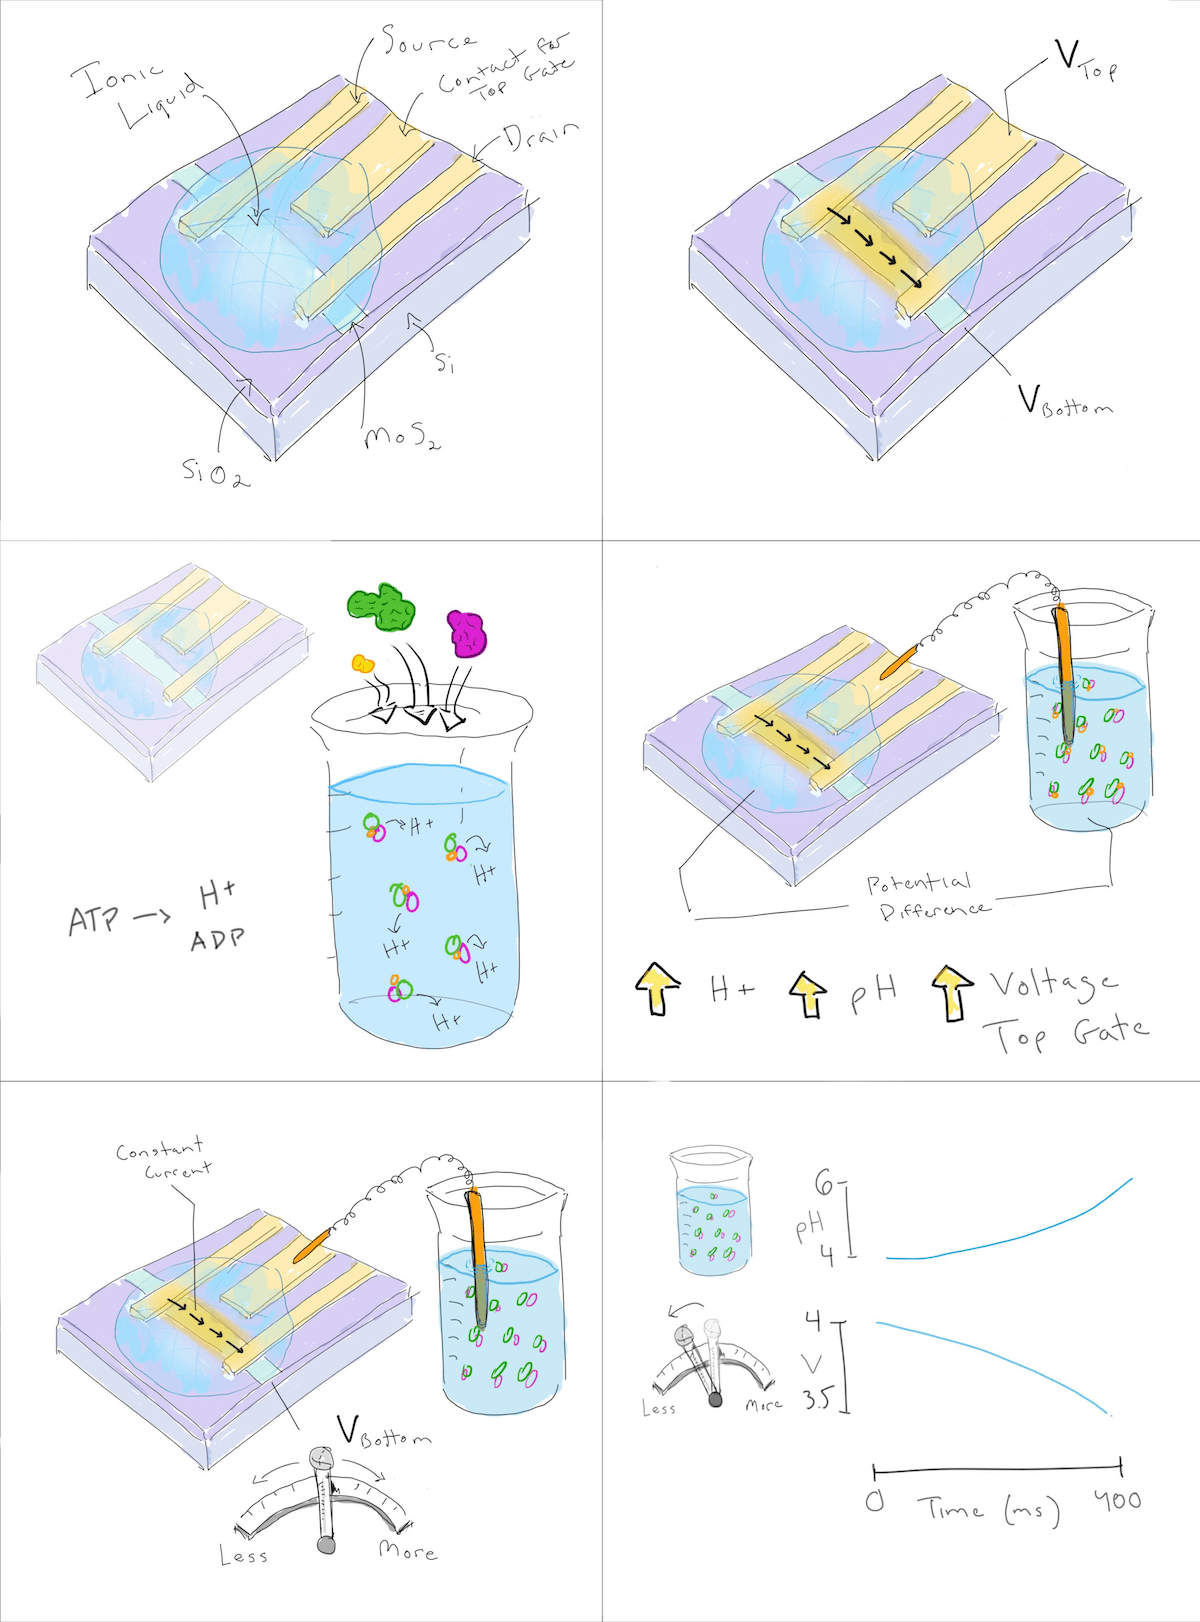 Ionic
Liquid
Source
Contact for
Top Gate
Drain
Si
MoS2
SiO2
VTop
VBottom
ATP → H+
ADP
H+
H+
H+
H+
H+
Potential
Difference
H+ pH Voltage
Top Gate
Constant
Current
VBottom
Less More
6
pH
4
4
V
3.5
Less More
0 Time (ms) 400